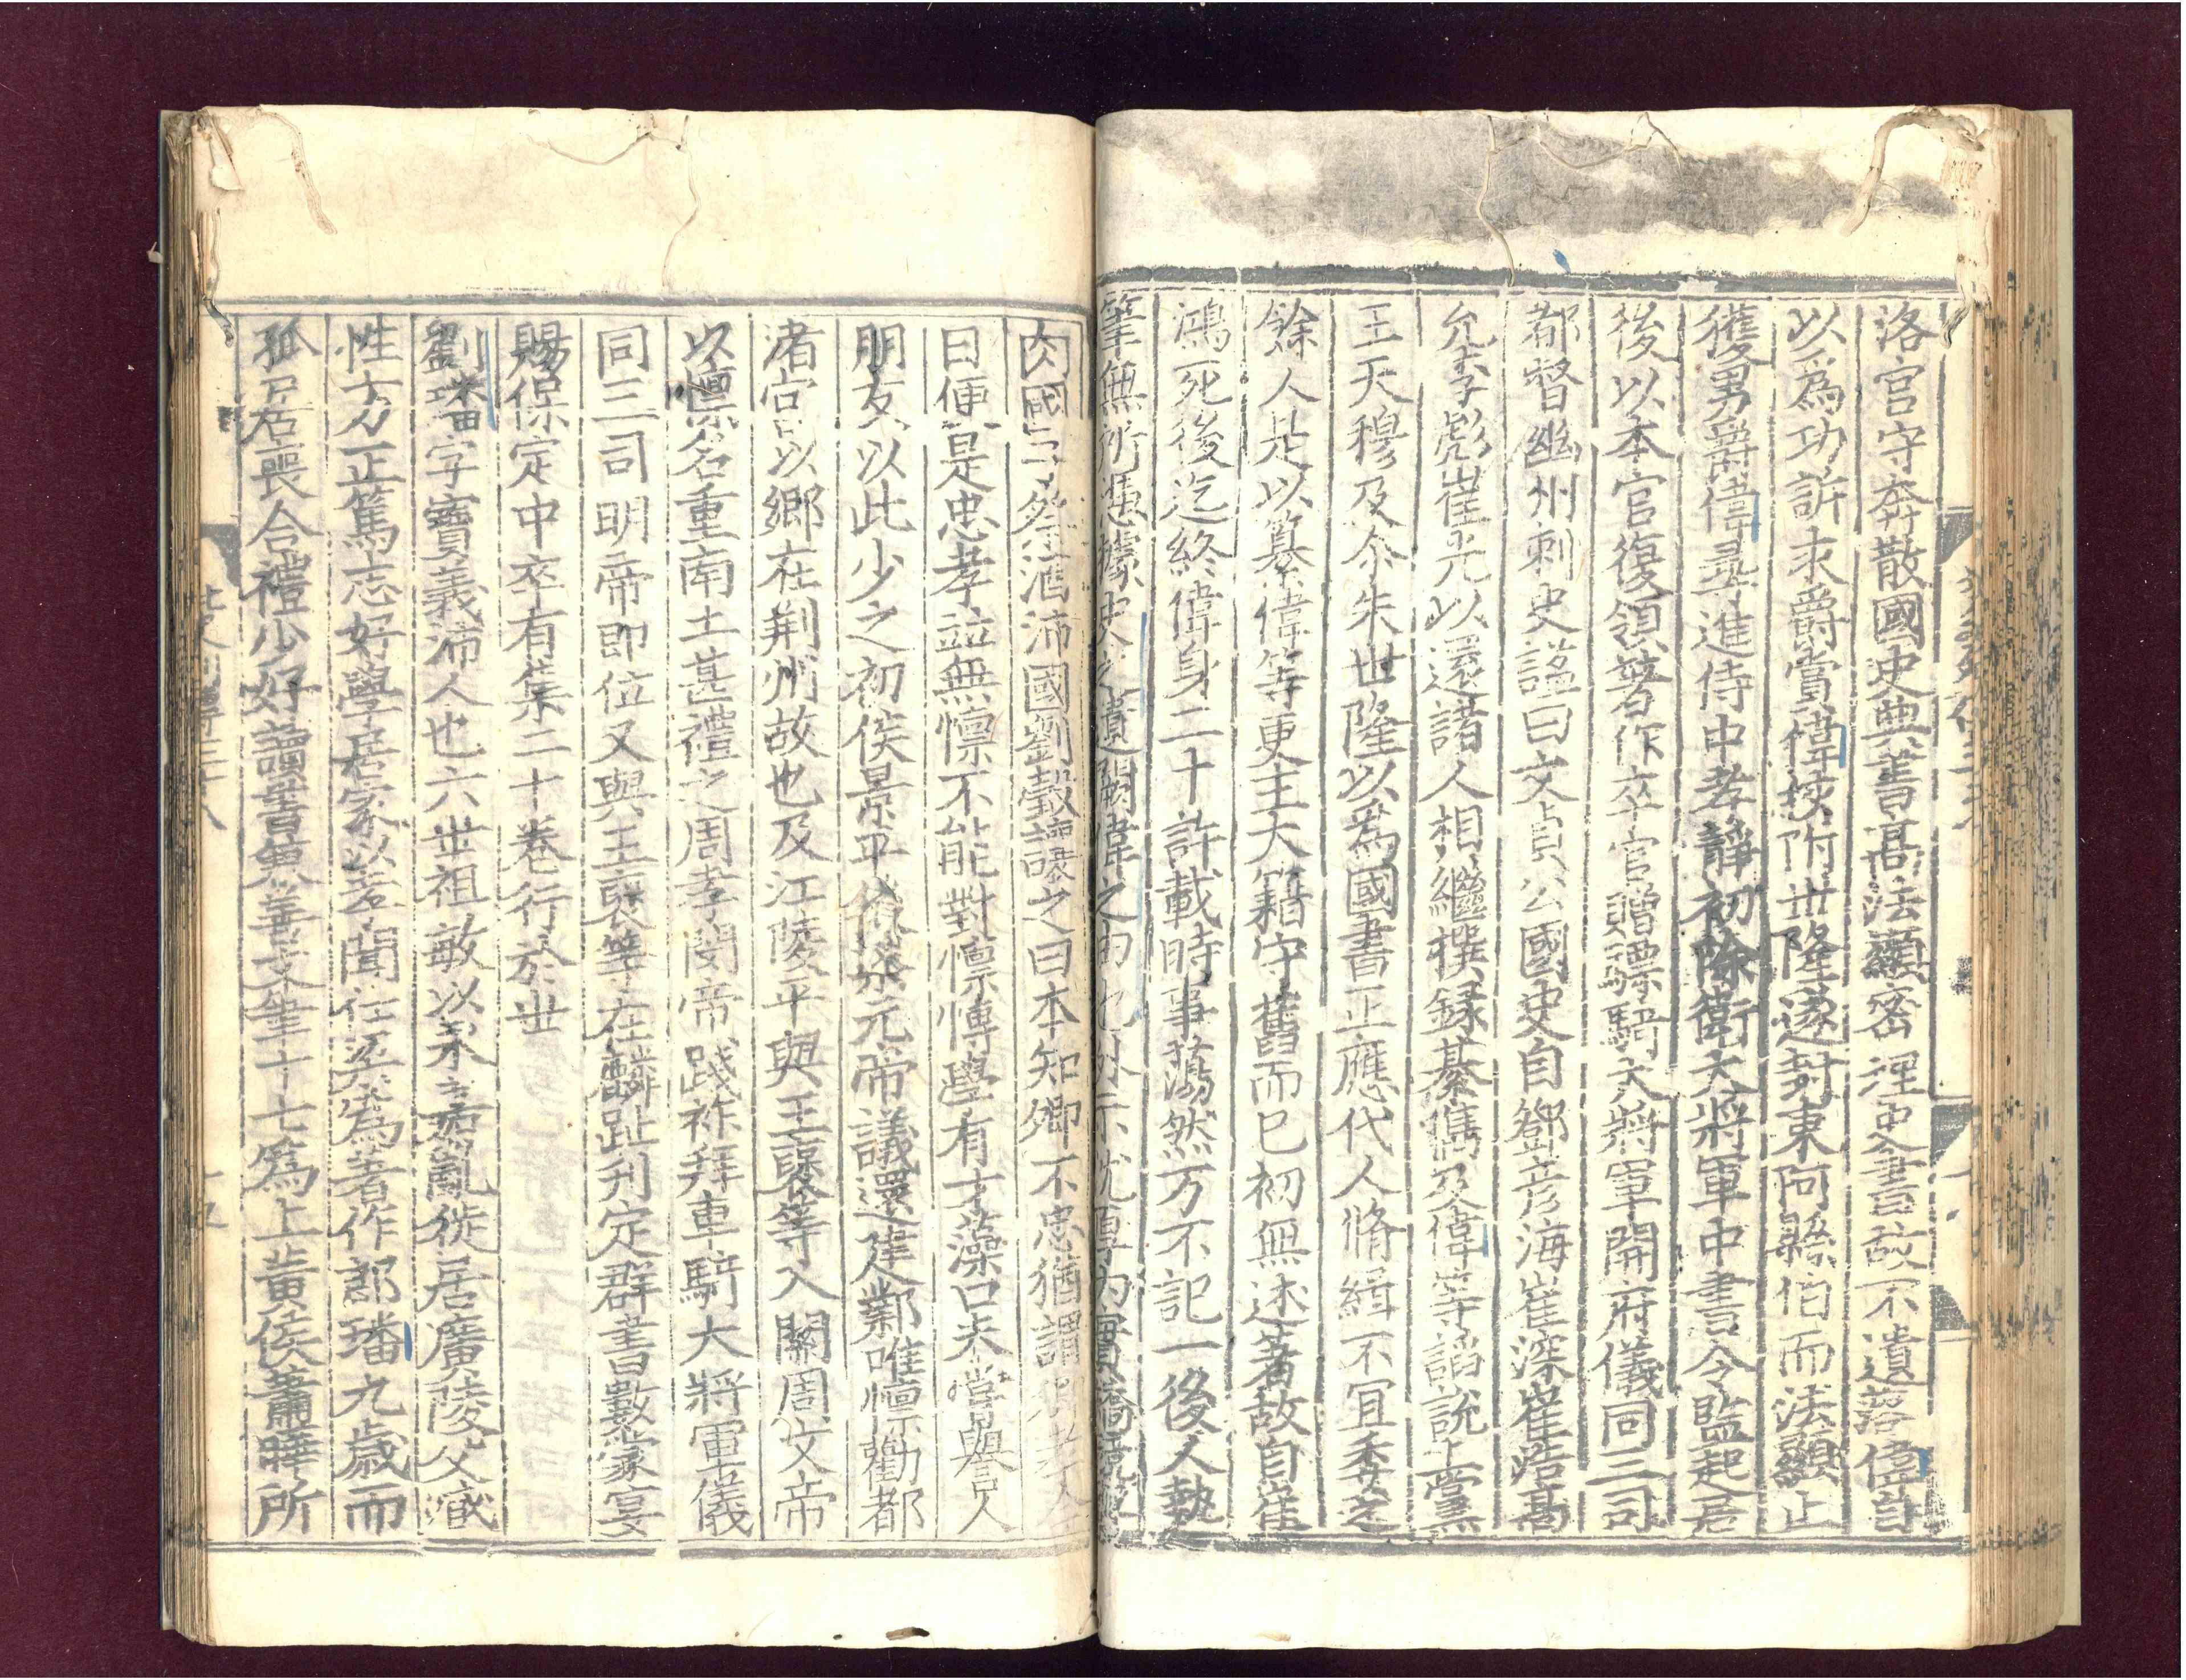 洛宫守奔散國史典書高法顯密埋史書故不遺落偉自
以爲功訴求爵賞偉挾附世隆遂封東阿縣伯而法顯止
獲男爵偉尋進侍中孝靜初除衛大將軍中書令監起居
後以本官復領著作卒官贈驃騎大將軍開府儀同三司
都督幽州刺史謚曰文貞公國史自鄧彦海崔深崔浩高
允李彪崔光以還諸人相繼撰録綦儁及偉等謟說上黨
王天穆及尒朱世隆以爲國書正應代人脩緝不宜委之
餘人是以綦偉等更主大籍守舊而已初無述著故自崔
鴻死後迄終偉身二十許載時事蕩然万不記一後人執
筆無所憑據史之遺闕偉之由也外示沈厚内實
肉國子祭酒沛國劉瑴讓之曰本知卿不忠猶謂
曰便是忠孝並無懍不能對懍博學有才藻口未嘗譽人
朋友以此少之初侯景平後梁元帝議還建鄴唯懍勸都
渚宫以鄉在荆州故也及江陵平與王襃等入關周文帝
以懍名重南土甚禮之周孝閔帝踐祚拜車騎大將軍儀
同三司明帝即位又與王襃等在麟趾刋定群書數蒙宴
賜保定中卒有集二十卷行於世
劉璠字寶義沛人也六世祖敏以永嘉亂徙居廣陵父臧
性方正篤志好學居家以孝聞仕梁爲著作郎璠九歲而
孤居喪合禮少好讀書兼善文筆十七爲上黄侯蕭曄所